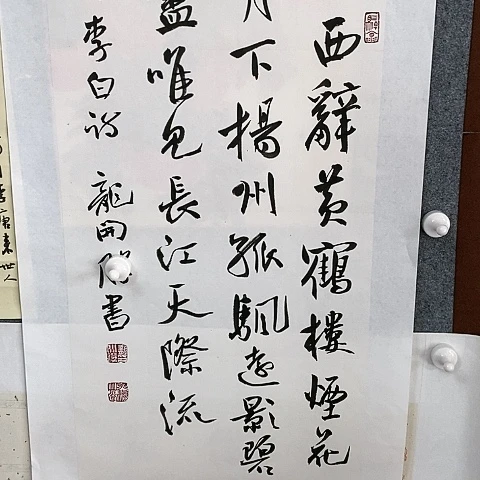 西辭黃鶴樓煙花
月下楊州孤颿遠影碧
盡唯見長江天際流
李白詩 龍 書
唐來世人